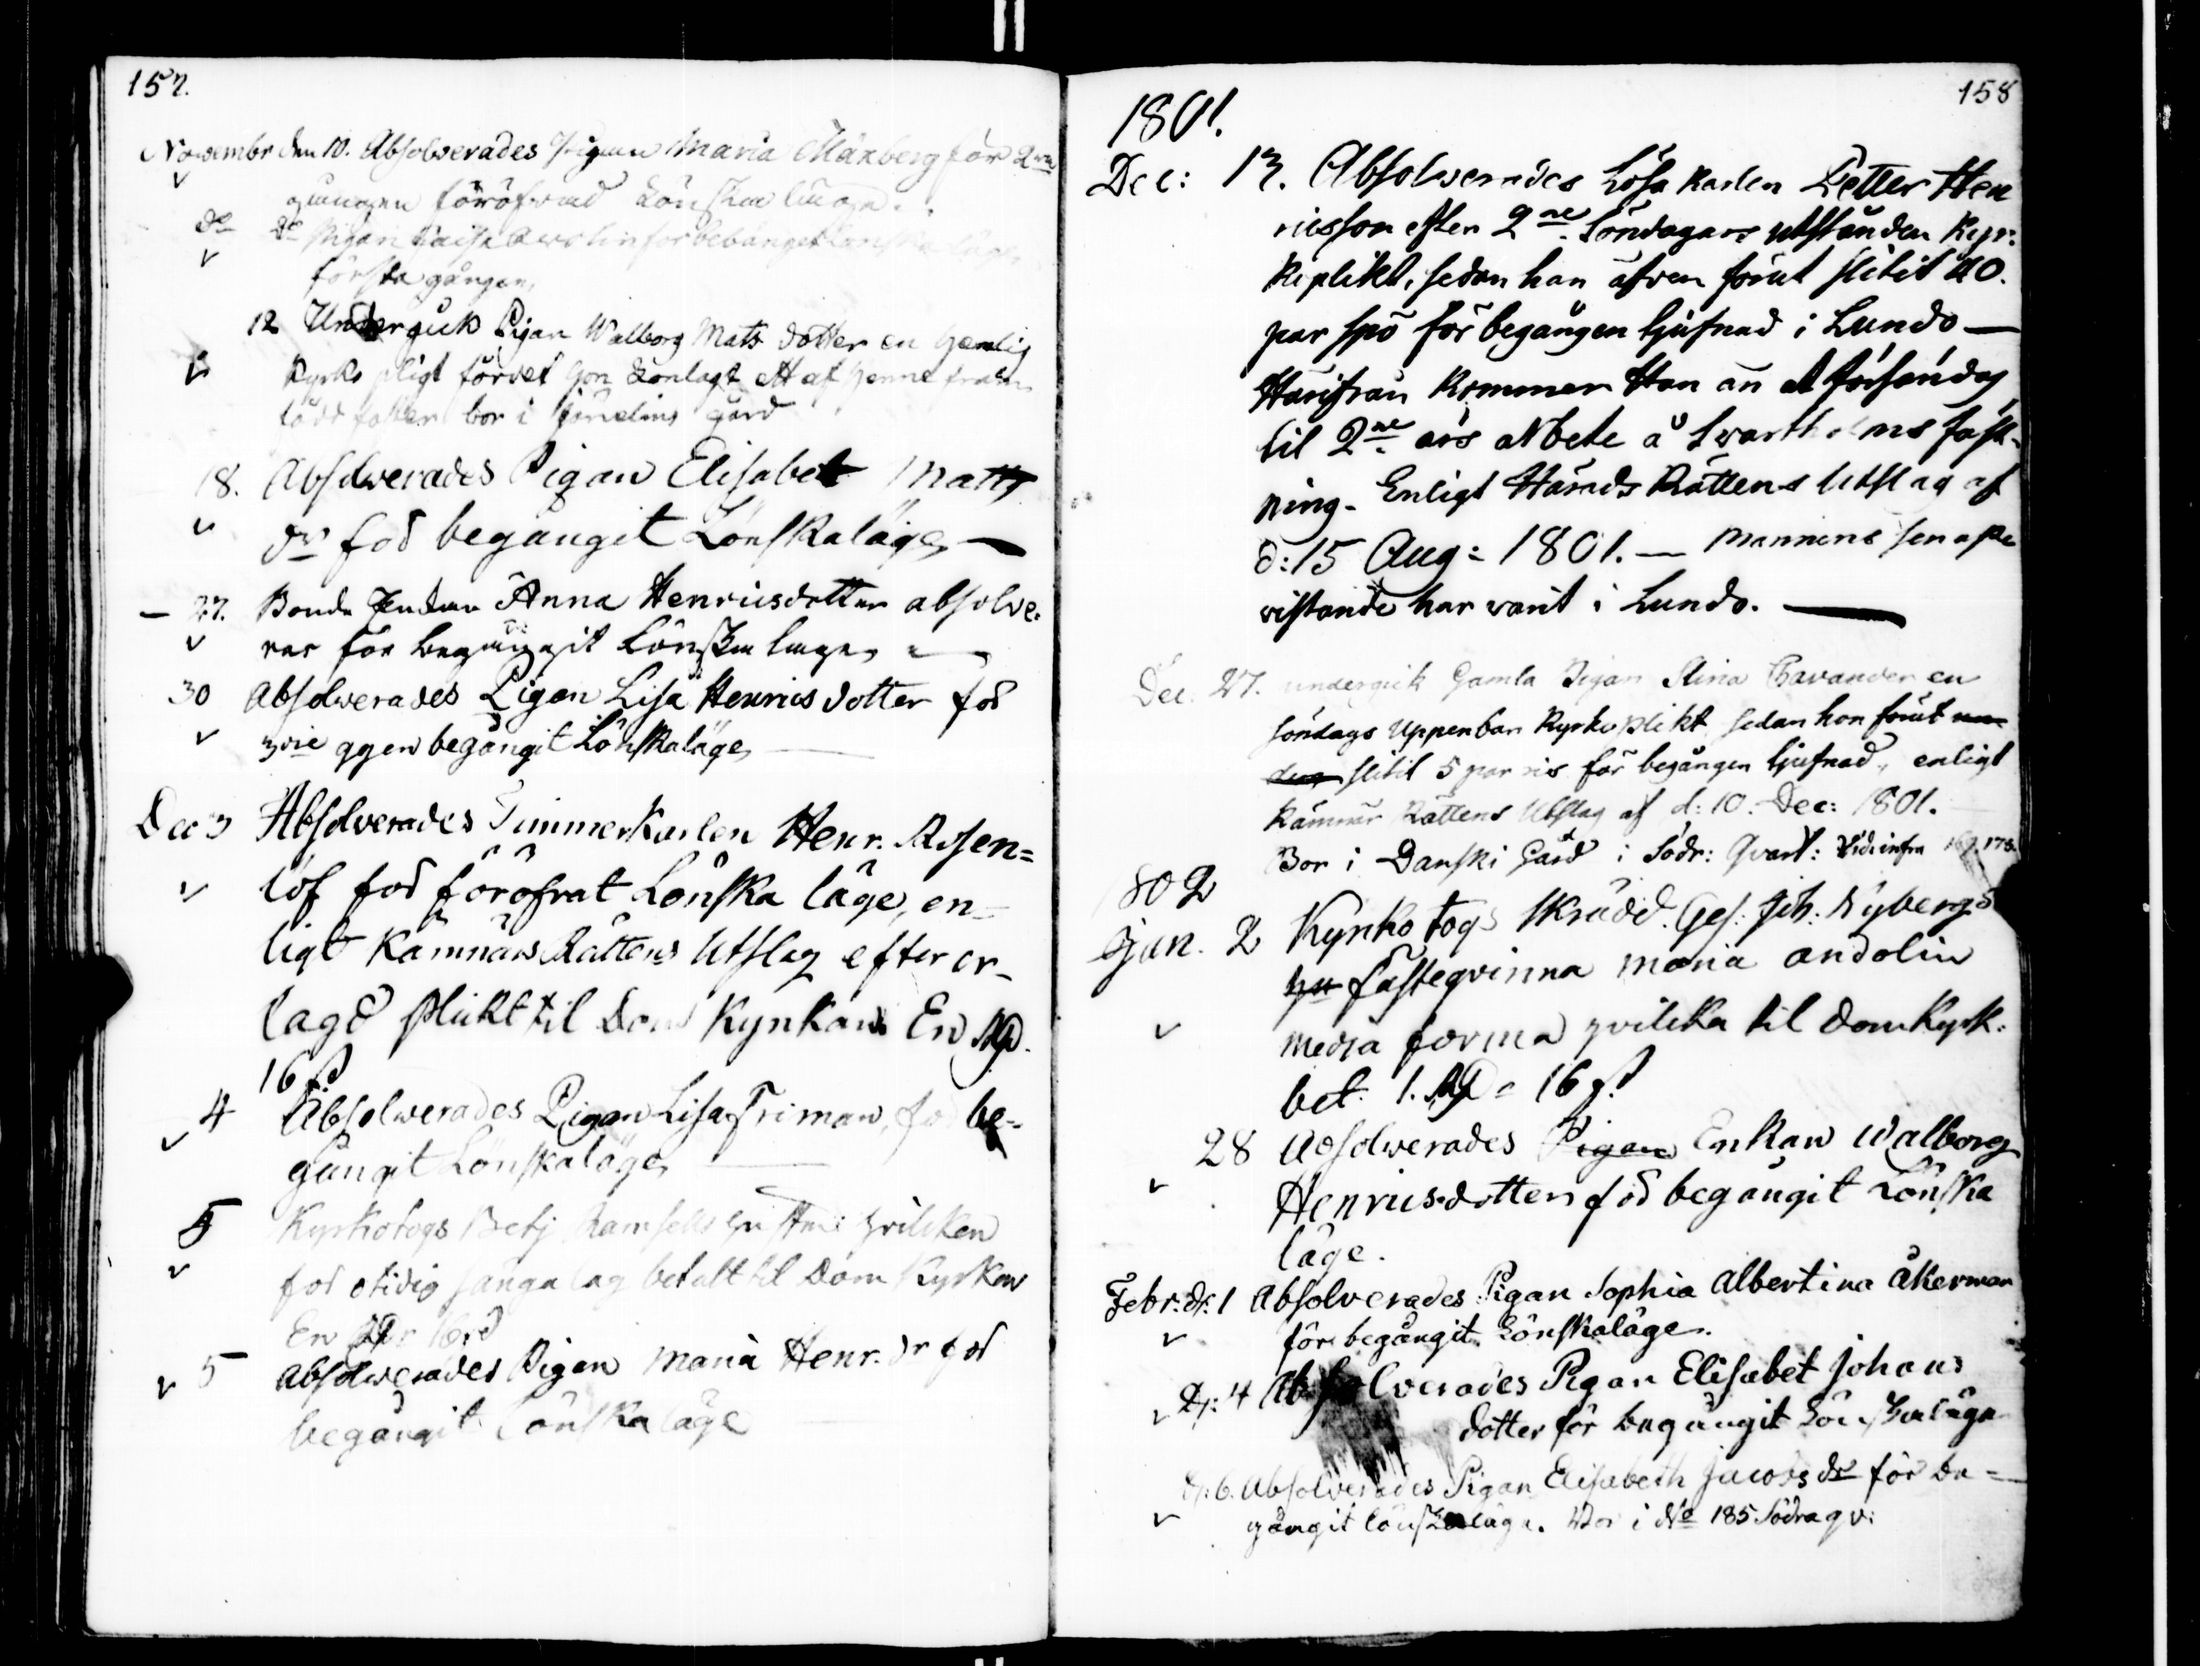 157.
Novembr den 10. Absolverades Pigan Maria Mänberg för 2dra
gången föröfwad Lönskaläge.
do do Pigan Caisa för bebånget
första gången,
12 Undergick Pigan Walborg Mats dotter en hemlig
Kyrko pligt fördet hon Lönlagt ett af henne
född foster bor i gård
18. Absolverades Pigan Elisabet Matts
dr för begångit Lönskaläge
27. Bonde Enkan Anna Henricsdotter absolve-
ras för begångit Lönskaläge
30 Absolverades Pigan Lisa Henrics dotter för
3die ggen begångit Lönskaläge
Dec 3 Absolverades Timmerkarlen Henr. Rosen=
löf för föröfvat Lönska läge, en=
ligt Kämnärs Rättens Utslag efter er-
lagd plickt til Dom Kyrkan En Rd.
16 s.
4 Absolverades Pigan Lisa Friman, för be-
gångit Lönskaläge
5 Kyrkotogs Betj Ramsells hustru hvilken
för otidig sänga lag betalt til Dom Kyrkan
En Rd 16 s
5 Absolverades Pigan Maria Henr. dr för
begångit Lönska läge
158
1801.
Dec: 13. Absolverades Lösa Karlen Petter Hen
ricsson efter 2ne Söndagars utstånden Kyr:
koplikt, sedan han äfven förut slitit 40.
par spö för begången tjufnad i Lundo
Härifrån kommer Han än at försändas
til 2ne års arbete å Swartholms fäst-
ning. Enligt Härads Rättens Utslag af
d: 15 Aug: 1801. Mannens senaste
vistande har varit i Lundo.
Dec. 27. undergick Gamla Pigan Stina Bavander en
söndags Uppenbar Kyrko plikt sedan hon förut
slitit 5 par ris för begången tjufnad, enligt
Kämnär Rättens Utslag af d: 10. Dec: 1801.
Bor i Danski Gård i Södr: Qvart: Vide infra 169. 178.
1802
Jan. 2 Kyrko togs Skrädd. Ges: Joh: Nybergs
hu fästeqvinna Maria andolin
media forma hvilcka til Domkyrk:
bet. 1. Rd 16 s.
28 Absolverades Pigan Enkan Walborg
Henricsdotter för begångit Lönska
läge.
Febr: d: 1 Absolverades Pigan Sophia Albertina Åkerman
för begångit Lönskaläge.
d: 4 Absolverades Pigan Elisabet Johans
dotter för begångit Lönskaläge
d: 6. Absolverades Pigan Elisabeth Jacobs dr för be=
gångit lönskaläge. Bor i No 185 Södra qv: